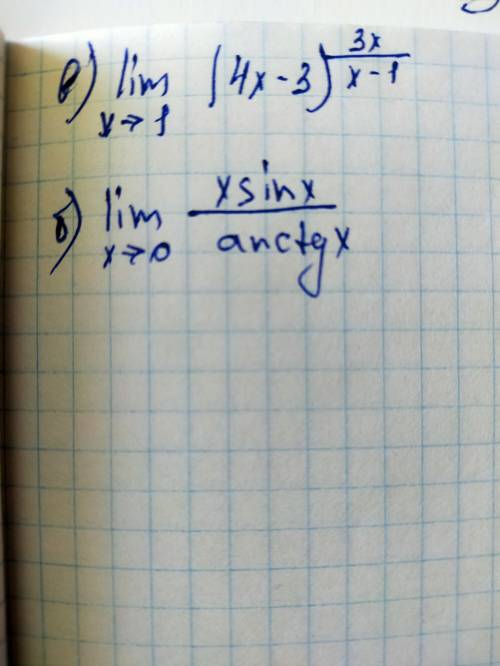 в) lim x→1 (4x-3)^(3x/(x-1))
б) lim x→0 (x sinx)/(arctg x)